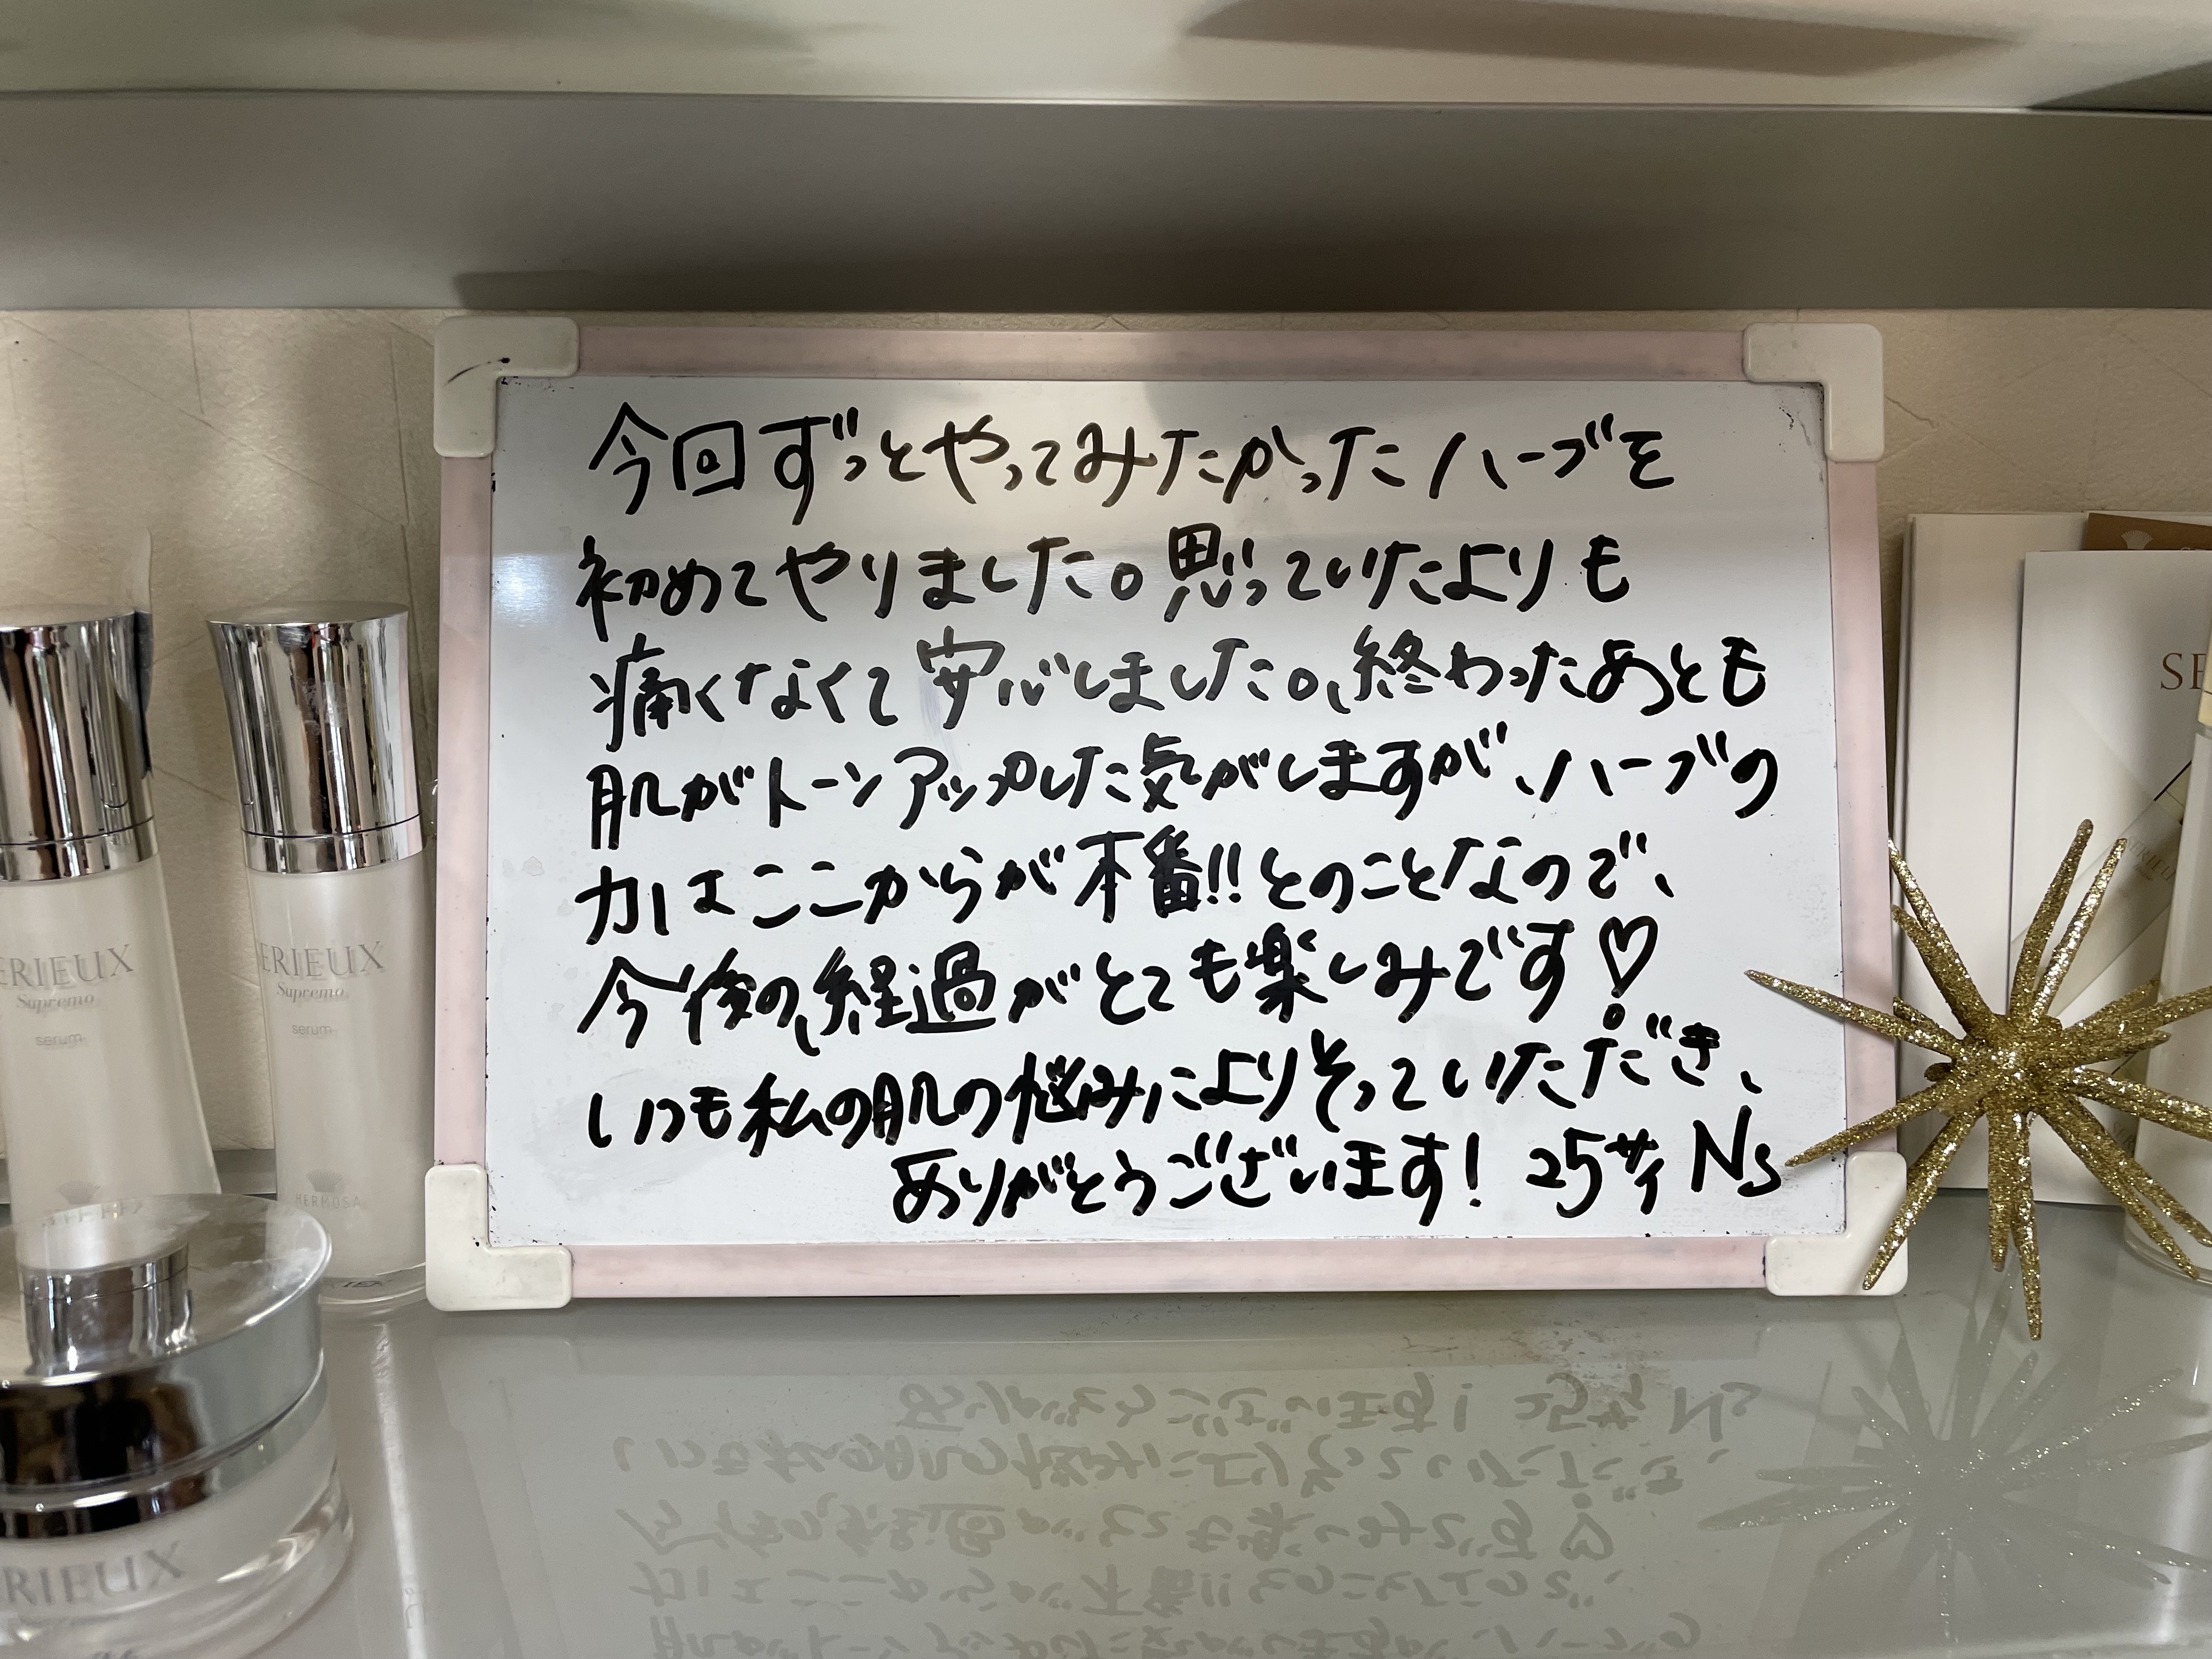 今回ずっとやってみたかったハーブを
初めてやりました。思っていたよりも
痛くなくて安心しました。終わったあとも
肌がトーンアップした気がしますが、ハーブの
力はここからが本番!!とのことなので、
今後の経過がとても楽しみです♡
いつも私の肌の悩みによりそっていただき、
ありがとうございます! 25才 Ns
ERIEUX
Supremo
serum
ERIEUX
Supremo
serum
HERMOSA
RIEUX
SE